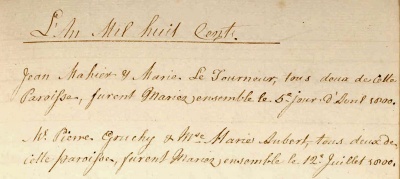 L'An Mil huit Cent.
Jean Mahier & Marie Le Tourneur, tous deux de cette
Paroisse, furent Mariez ensemble le 5e jour d'Avril 1800.
Mr. Pierre Gruchy & Mse. Marie Aubert, tous deux de
cette paroisse, furent Mariez ensemble le 12e Juillet 1800.